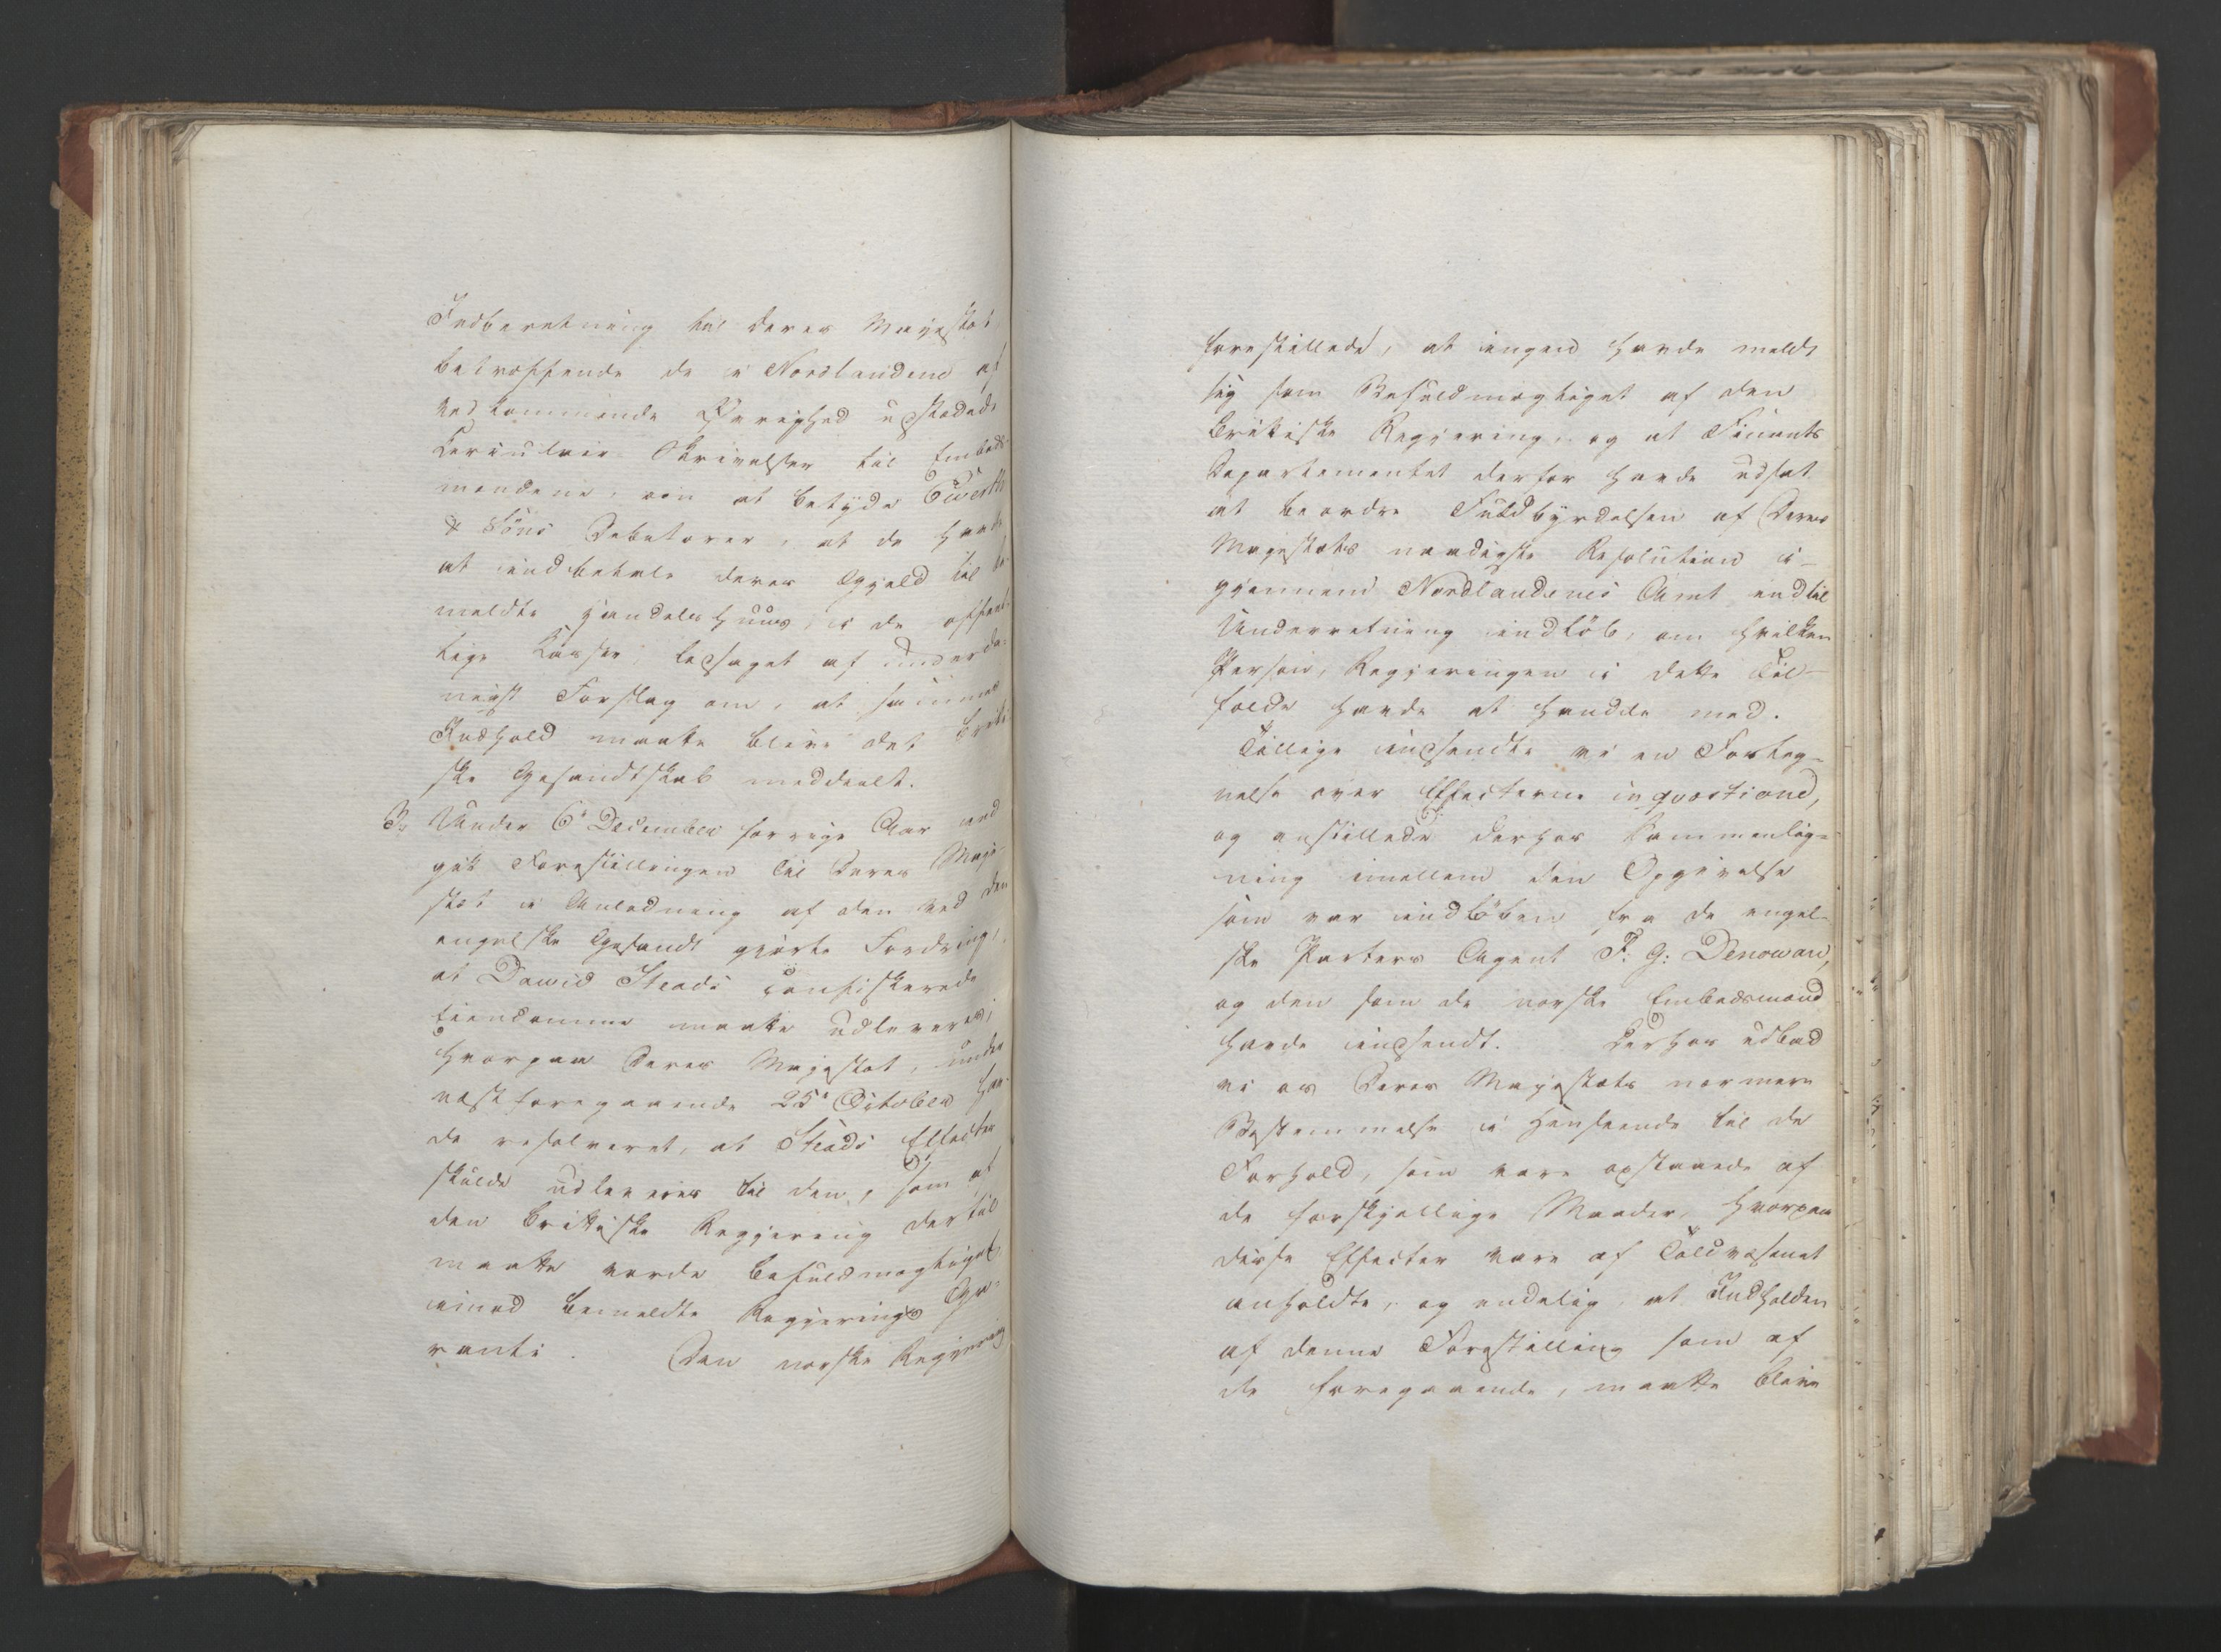 Indberetning til Deres Majestæt
betræffende de i Nordlandene af
vedkommende Øvrighed udstædede
Circulair Skrivelser til Embeds-
mændene, om at betyde Ewerth
& Söns Debitorer, at de havde
at indbetale deres Gjæld til be-
meldte Handelshuus, i de offent-
lige Kasser, ledsaget af underda-
nigst Forslag om, at sammes
Indhold maatte blive det britti-
ske Gesandtskab meddeelt.
3, Under 6te December forrige Aar ind
gik Forestillingen til Deres Maje-
stæt i Anledning af den ved den
engelske Gesandt gjorte Fordring,
at Dawid Steads confiskerede
Eiendomme maatte udleveres;
hvorpaa Deres Majestæt, under
næstforegaaende 25de October hav-
de resolveret, at Steads Effecter
skulde udleveres til den, som af
den brittiske Regjering dertil
maatte vorde befuldmægtiget
imod bemeldte Regjerings Ga-
ranti. Den norske Regjering
forestillede, at ingen havde meldt
sig som Befuldmægtiget af den
brittiske Regjering, og at Finants
Departementet derfor havde udsat
at beordre Fuldbyrdelsen af Deres
Majestæts naadigste Resolution i-
gjennem Nordlandenes Amt indtil
Underretning indlöb, om hvilken
Person, Regjeringen i dette Til-
fælde havde at handle med.
Tillige indsendte vi en Forteg-
nelse over Effecterne in qvæstione,
og anstillede derhos Sammenlig-
ning imellem den Opgivelse
som var indlöben fra de engel-
ske Parters Agent F: G: Denowan,
og den som de norske Embedsmænd
havde indsendt. Derhos udbad
vi os Deres Majestæts nærmere
Bestemmelse i Henseende til de
Forhold, som vare opstaaede af
de forskjellige Maader, hvorpaa
disse Effecter vare af Toldvæsenet
anholdte, og endelig, at Indholden
af denne Forestilling som af
de foregaaende, maatte blive